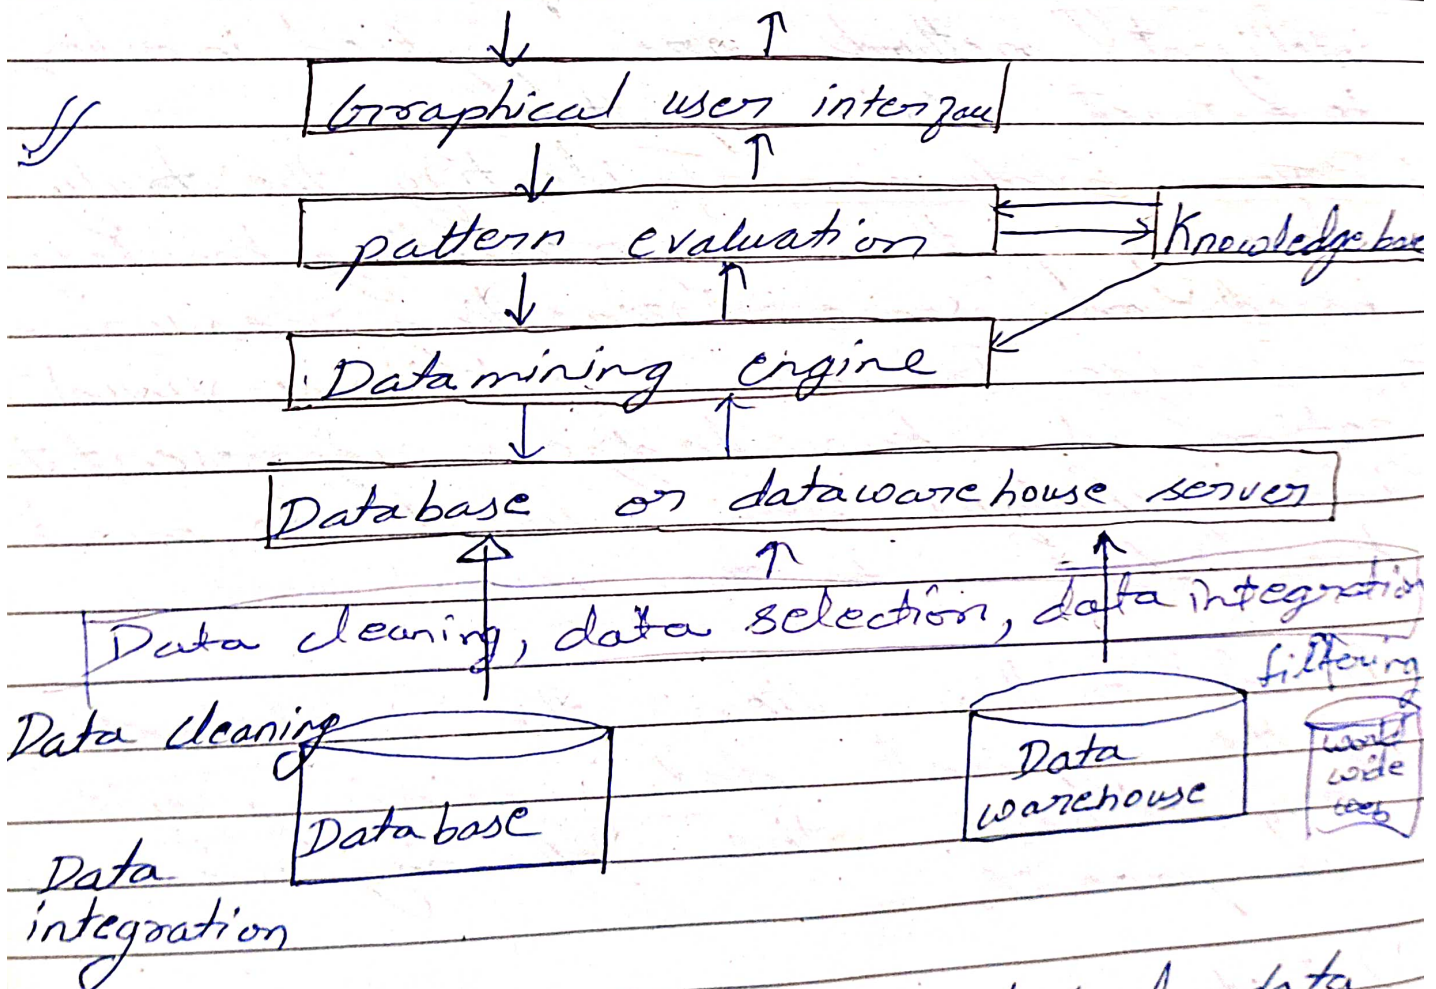 Graphical user interface
pattern evaluation
Knowledge base
Data mining engine
Database or datawarehouse server
Data cleaning, data selection, data integration
filtering
Data cleaning
Database
Data
warehouse
world
wide
web
Data
integration
data